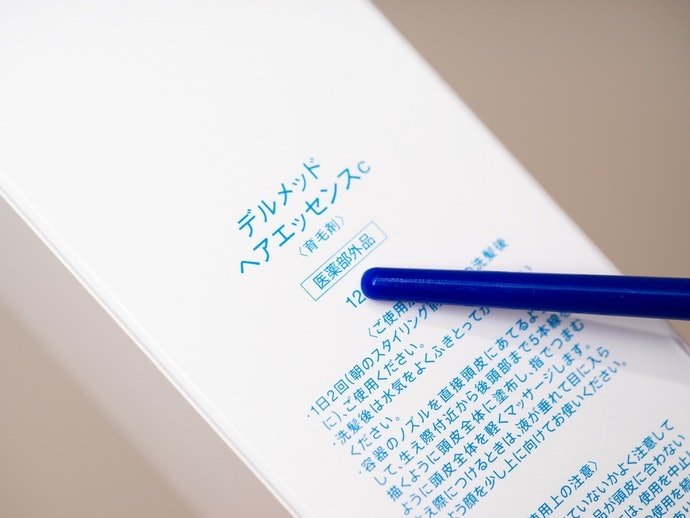 デルメッド
ヘアエッセンスC
〈育毛剤〉
医薬部外品
12
〈ご使用
洗髪後
・1日2回(朝のスタイリング
に)、ご使用ください。
・洗髪後は水気をよくふきとってか
ください。
・容器のノズルを直接頭皮にあてるよう
して、生え際付近から後頭部まで5本線を
描くように頭皮全体に塗布し、指でつまむ
ように頭皮全体を軽くマッサージします。
え際につけるときは、液が垂れて目に入ら
よう顔を少し上に向けてお使いください。
使用上の注意〉
ていないかよく注意して
品が頭皮に合わない
は、使用を中止
使用を続